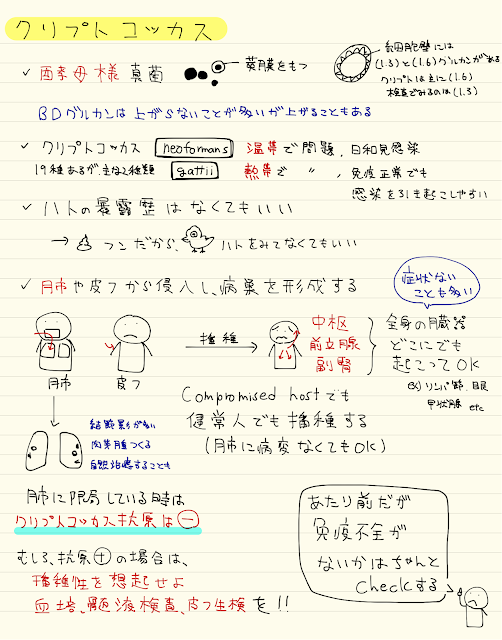 クリプトコッカス
✓ 酵母様真菌
莢膜をもつ
細胞壁には
(1.3)と(1.6)グルカンがある
クリプトは主に(1.6)
検査でみるのは(1.3)
BDグルカンは上がらないことが多いが上がることもある
✓ クリプトコッカス neoformans 温帯で問題、日和見感染
19種あるが、主な2種類 gattii 熱帯で 〃 、免疫正常でも
感染を引き起こしやすい
✓ ハトの暴露歴はなくてもいい
→ フンだから、ハトをみてなくてもいい
✓ 肺や皮フから侵入し、病巣を形成する
症状ない
ことも多い
肺
皮フ
播種
中枢
前立腺
副腎
全身の臓器
どこにでも
起こってOK
ex) リンパ節、眼
甲状腺 etc
結節影が多い
肉芽腫つくる
自然治癒することも
Compromised hostでも
健常人でも播種する
(肺に病変なくてもOK)
肺に限局している時は
クリプトコッカス抗原は⊖
むしろ、抗原⊕の場合は、
播種性を想起せよ
血培、髄液検査、皮フ生検を!!
あたり前だが
免疫不全が
ないかはちゃんと
Checkする